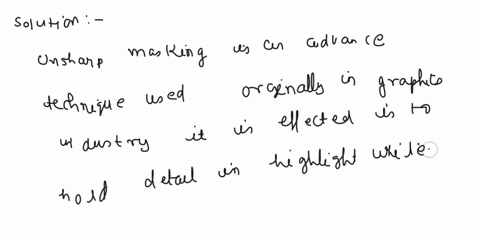 Solution:-
Unsharp masking is an advance
technique used orginally in graphics
industry it is effected is to
hold detail in highlight while